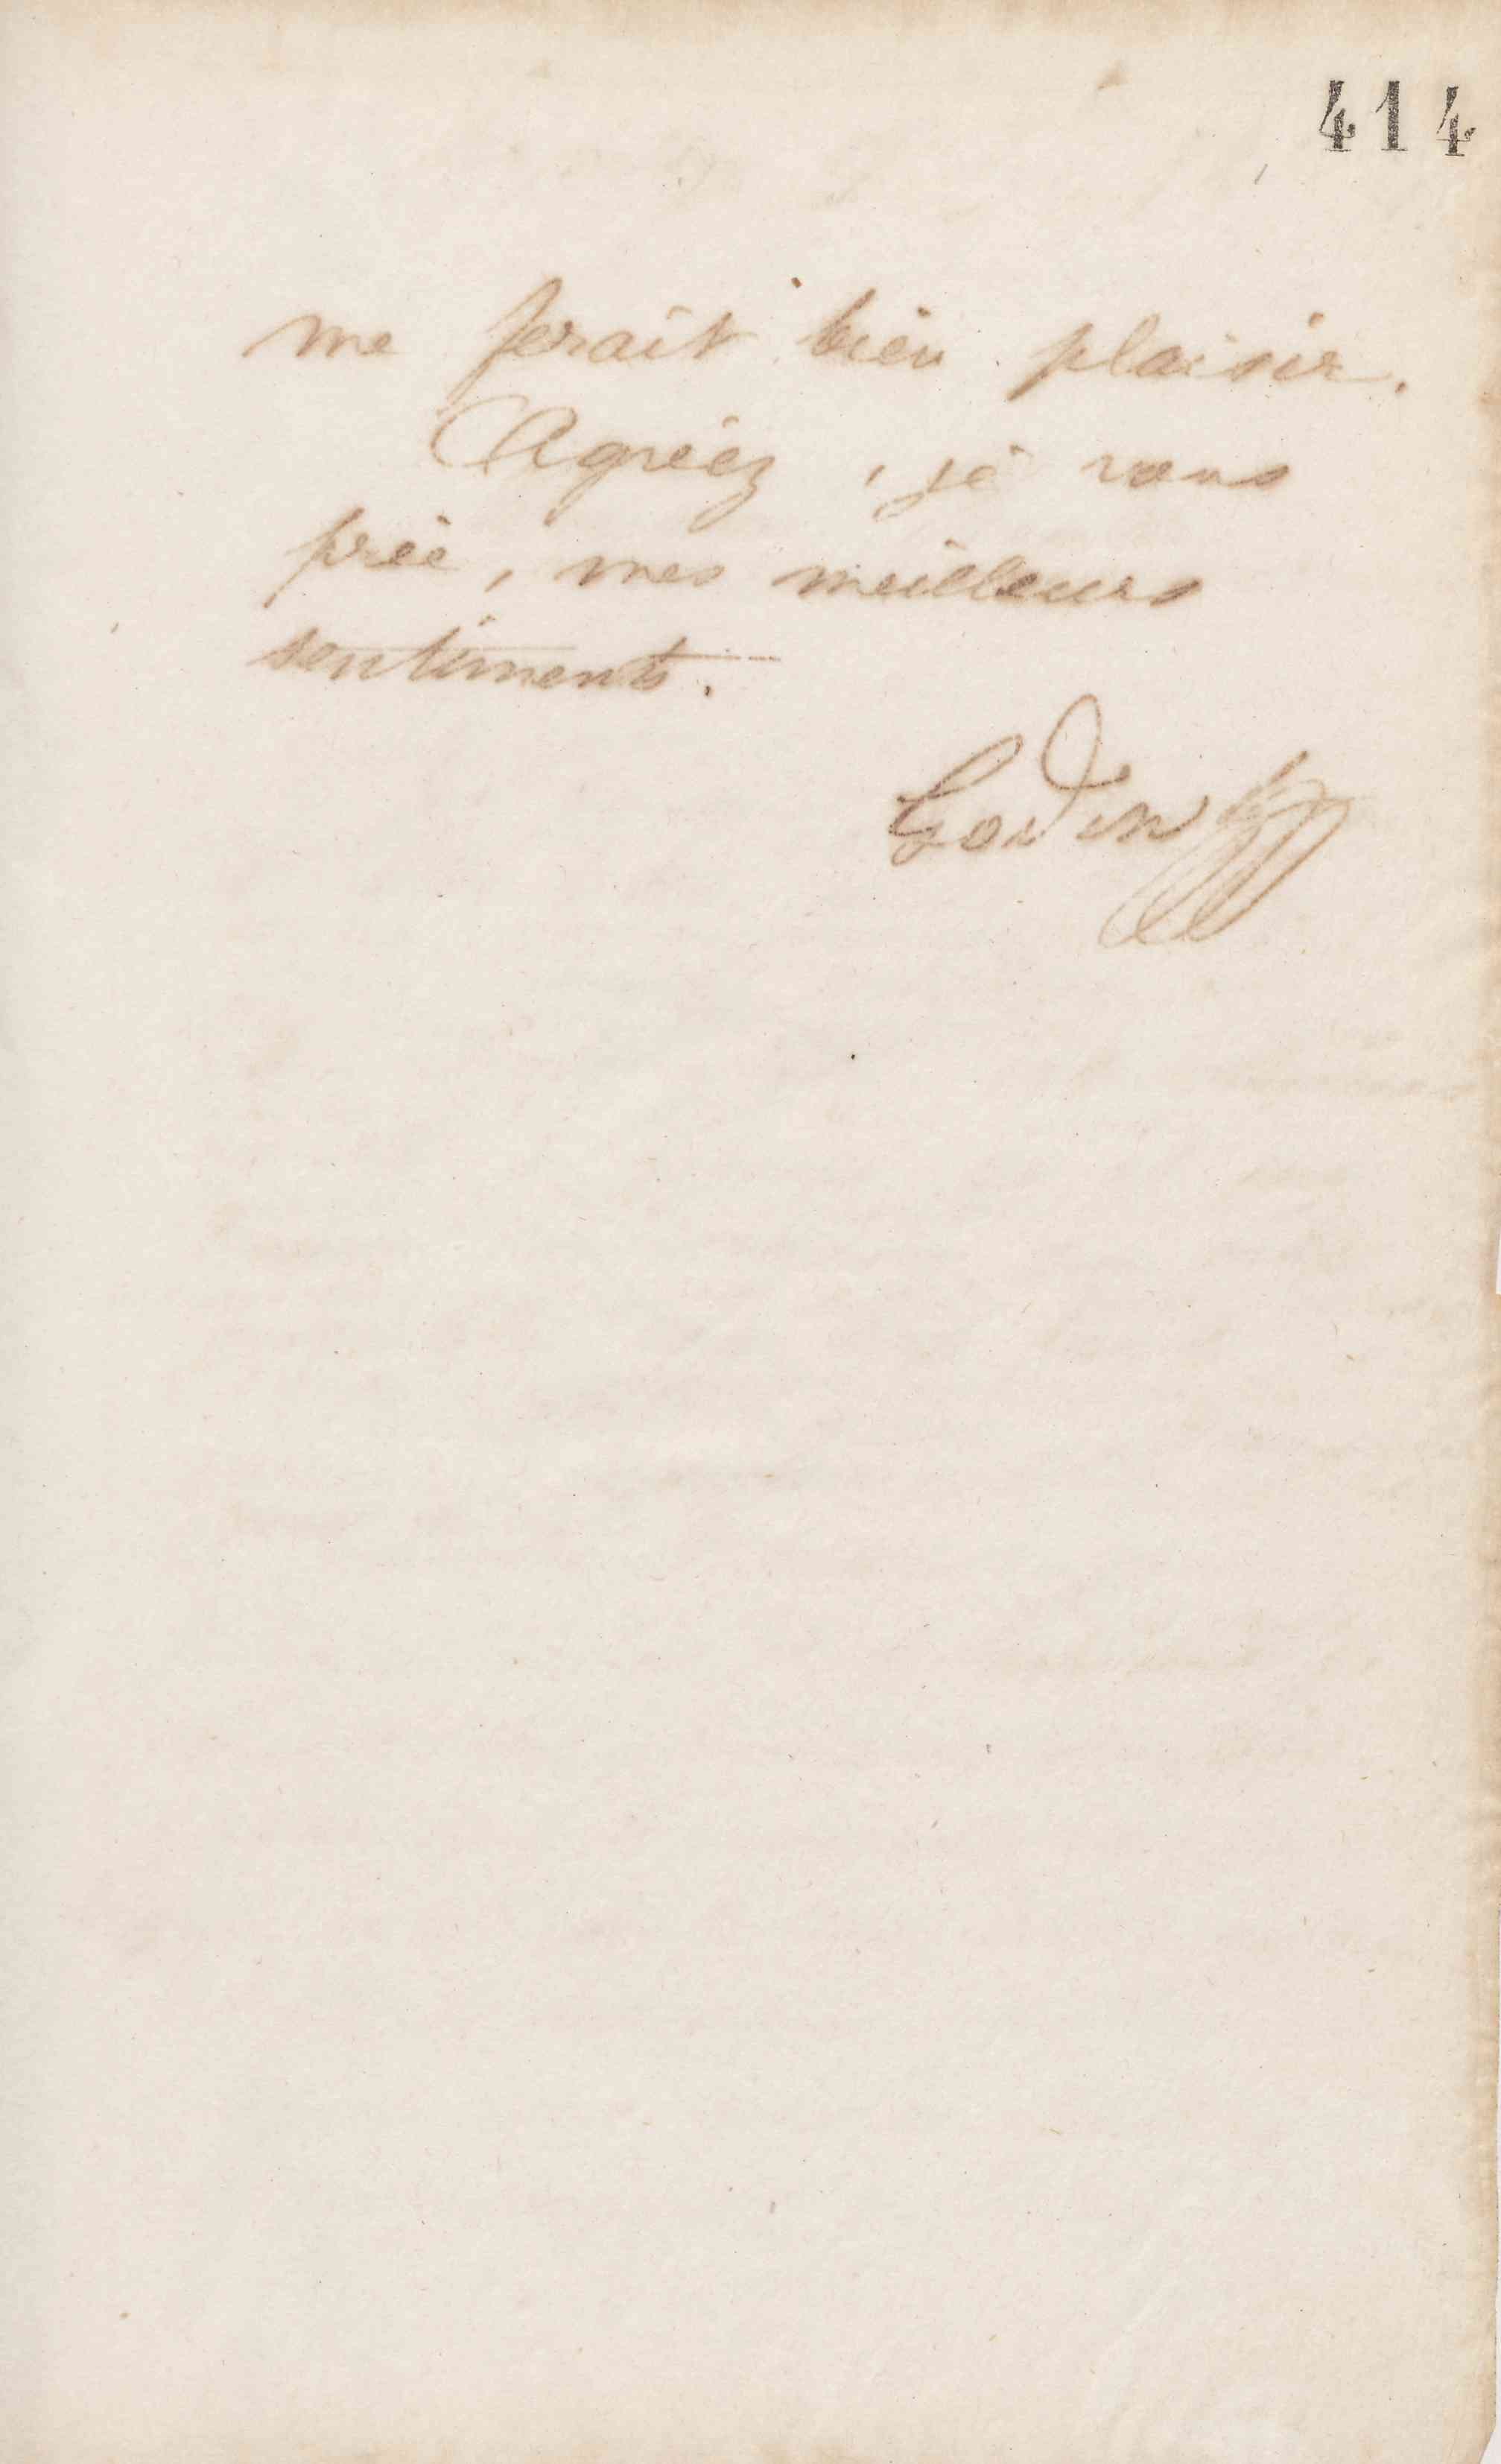 414
me ferait bien plaisir.
Agréez, je vous
prie, mes meilleurs
sentiments.
Godin